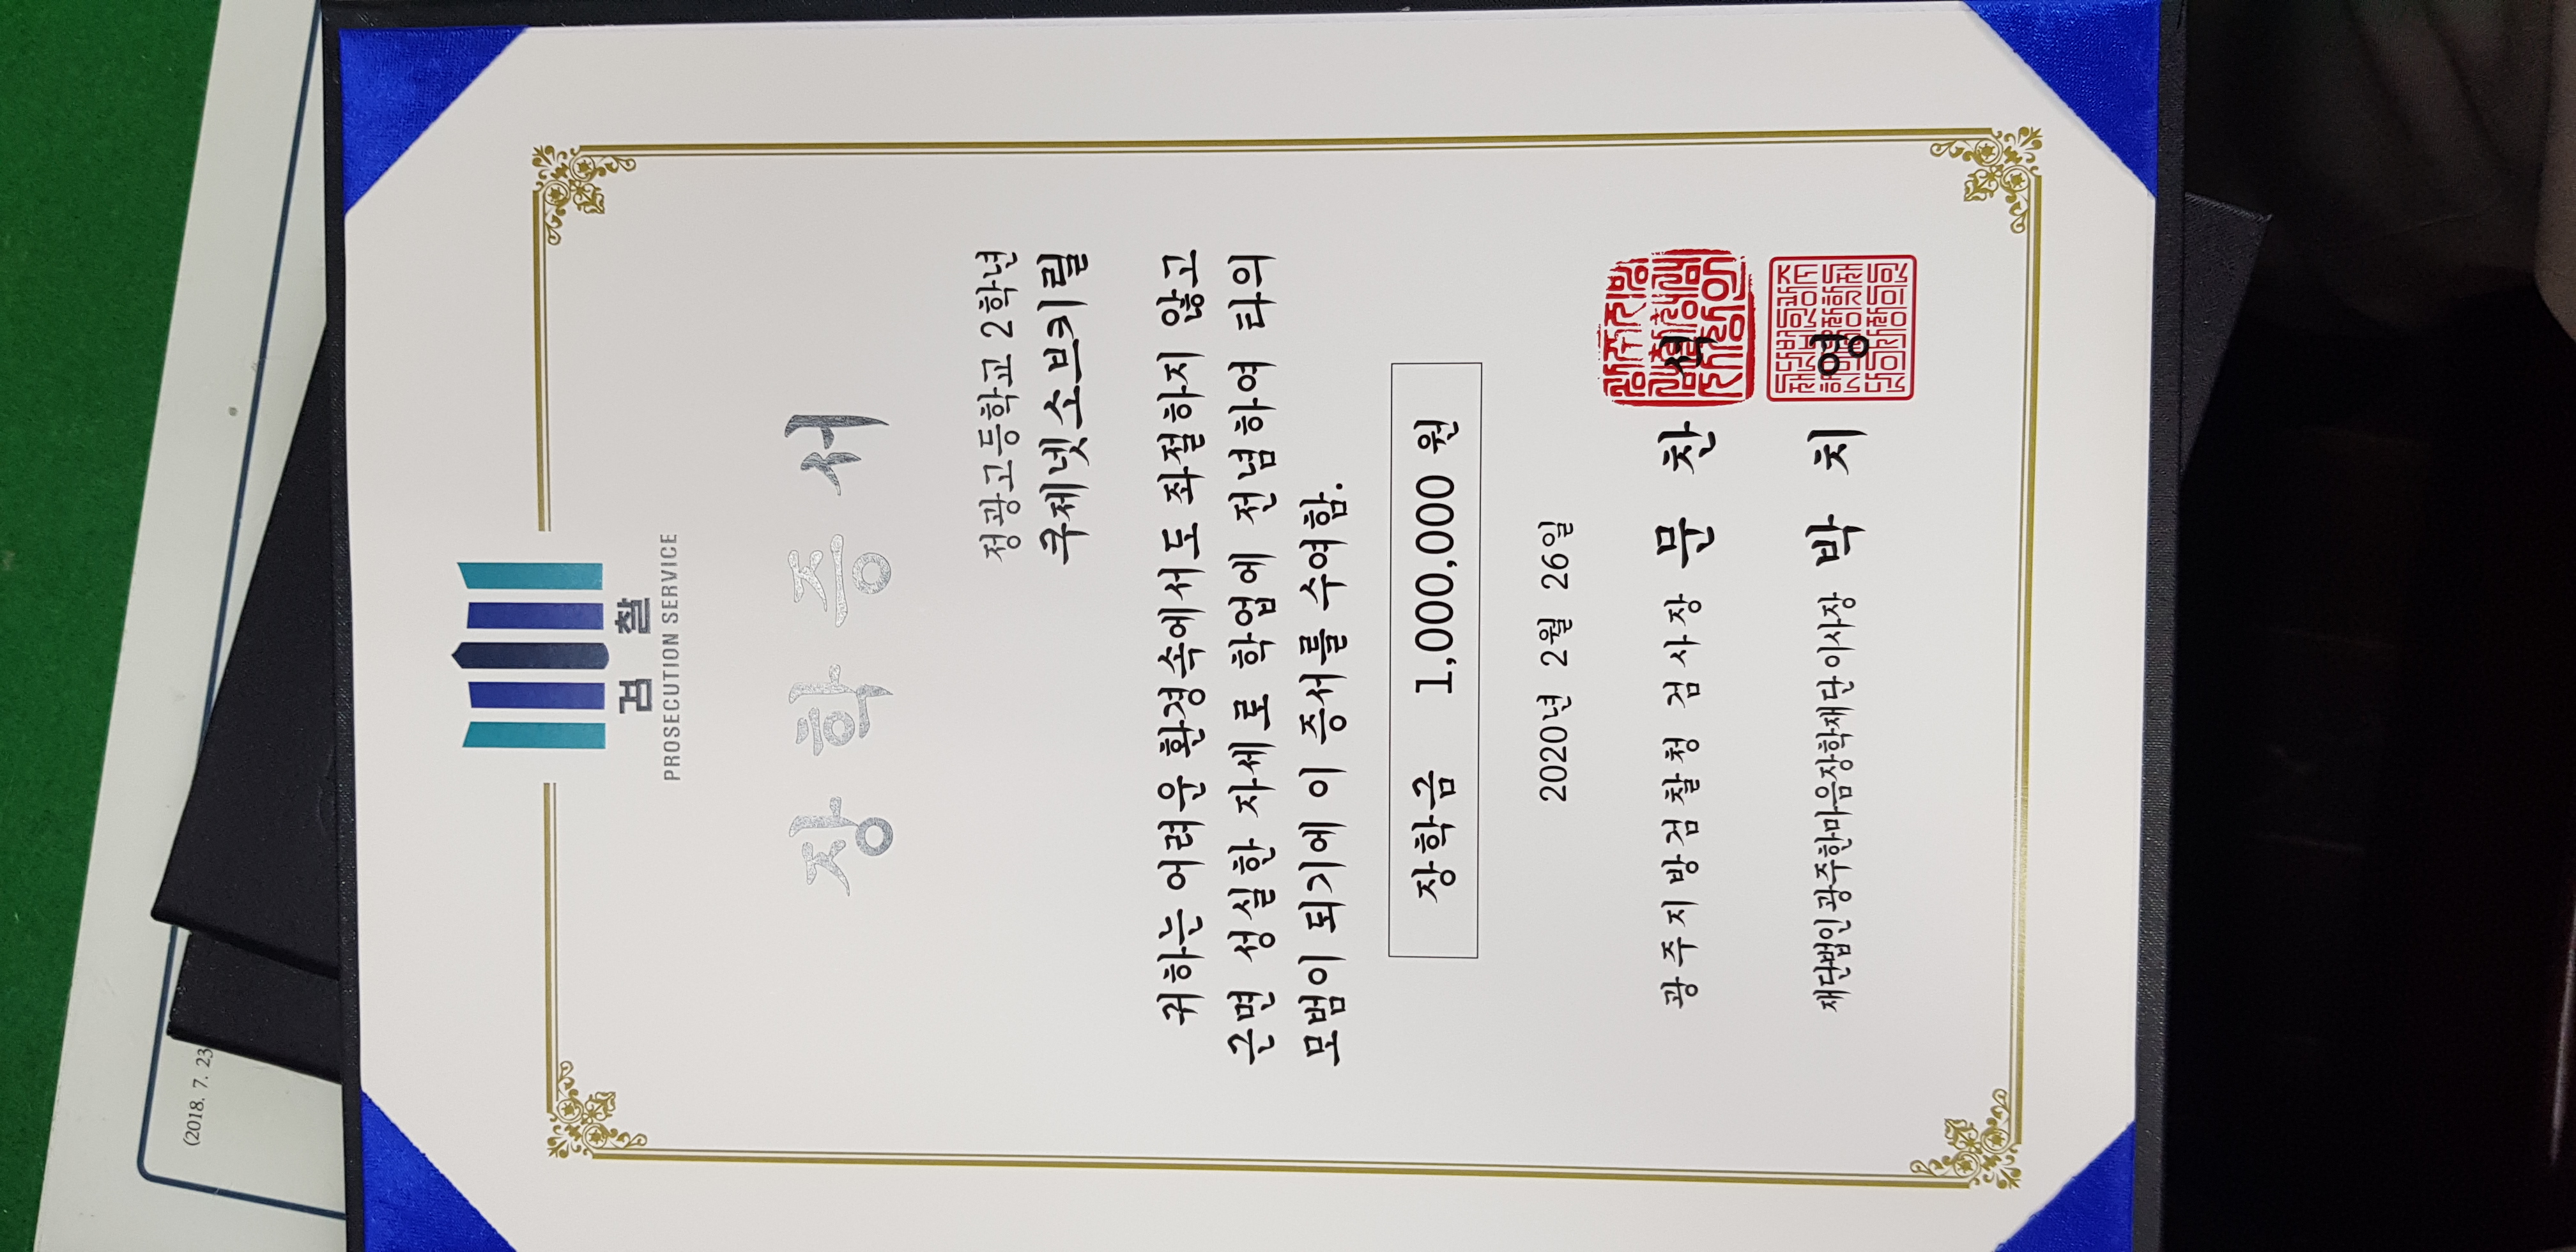 검 찰
PROSECUTION SERVICE
장 학 증 서
정광고등학교 2학년
쿠제넷소브키릴
귀하는 어려운 환경속에서도 좌절하지 않고
근면 성실한 자세로 학업에 전념하여 타의
모범이 되기에 이 증서를 수여함.
장학금 1,000,000 원
2020년 2월 26일
광주지방검찰청 검사장 문 찬 석
재단법인광주한마음장학재단이사장 박 치 영
(2018. 7. 23